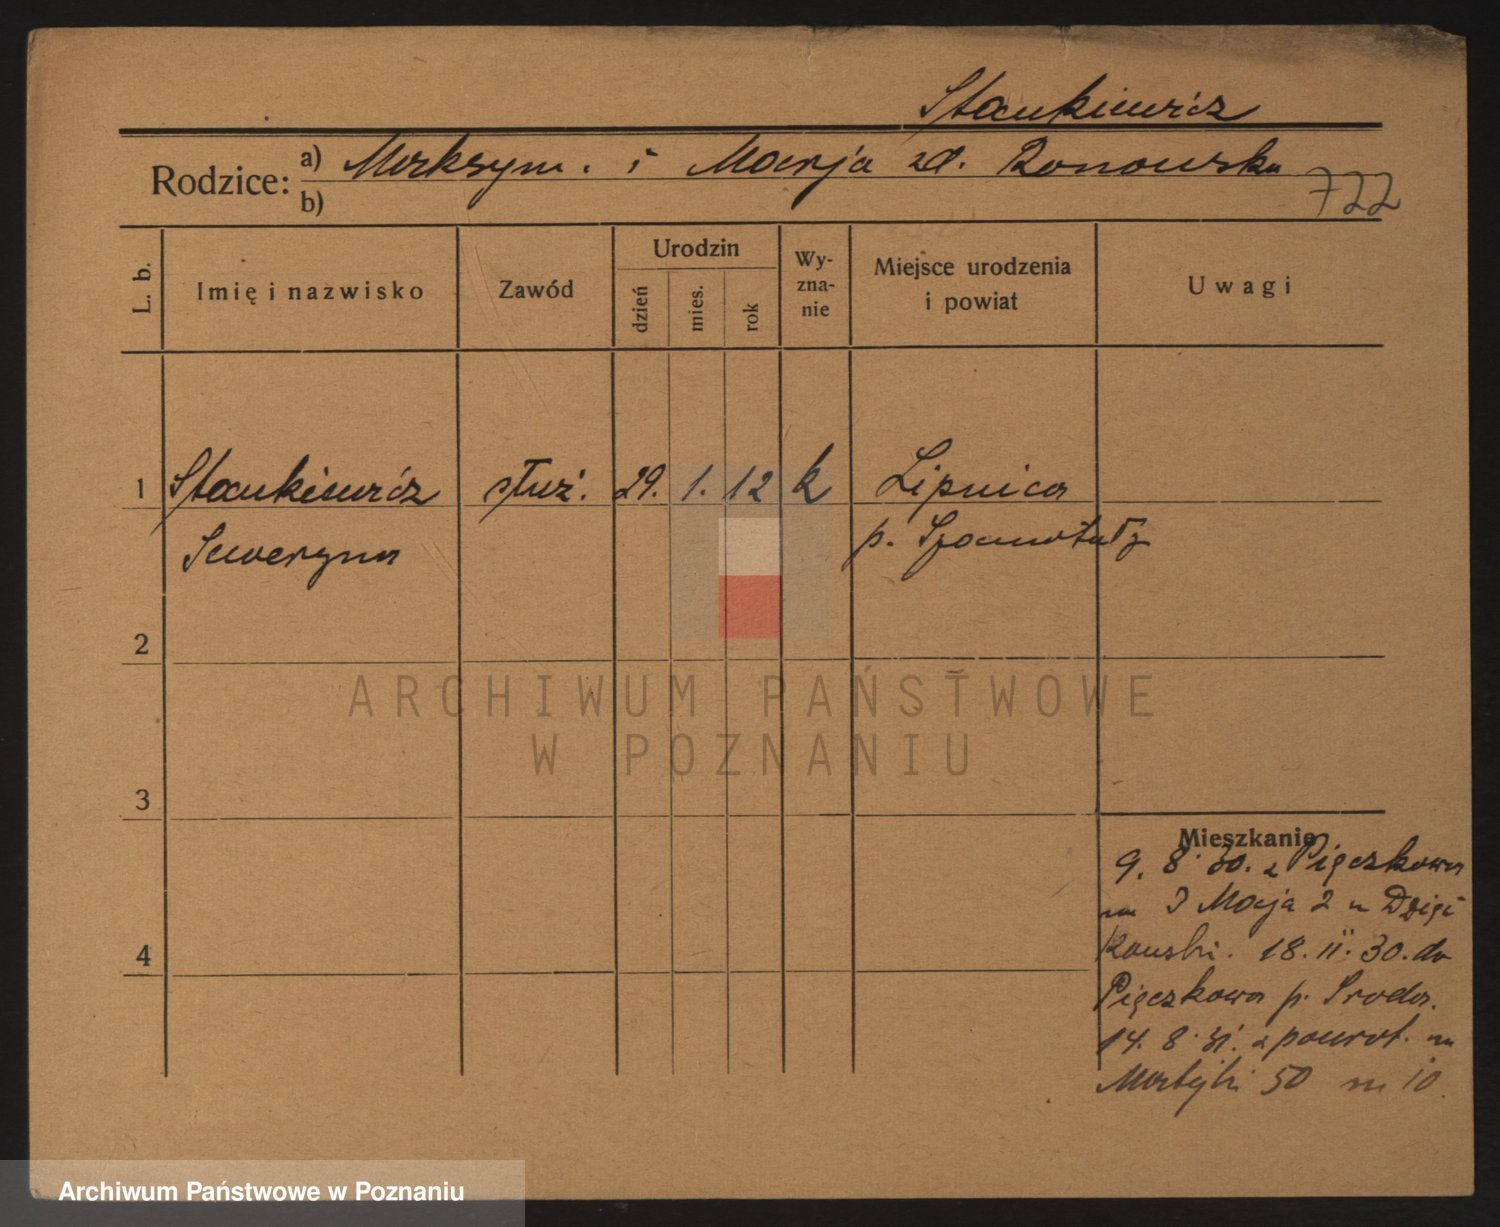 Stankiewicz
Rodzice: a) Maksym. i Marja zd. Ronowska
b)
722
L. b.
Imię i nazwisko
Zawód
Urodzin
dzień
mies.
rok
Wy-
zna-
nie
Miejsce urodzenia
i powiat
Uwagi
1 Stankiewicz służ. 29. 1. 12 k Lipnica
Seweryna p. Szamotuły
2
3
4
Mieszkanie
9. 8. 30. z Pięczkowa
na 3 Maja 2 u
18. 11. 30. do
Pięczkowa p. Środa.
14. 8. 31. z powrot. na
Matejki 50 m 10.
ARCHIWUM PAŃSTWOWE
W POZNANIU
Archiwum Państwowe w Poznaniu